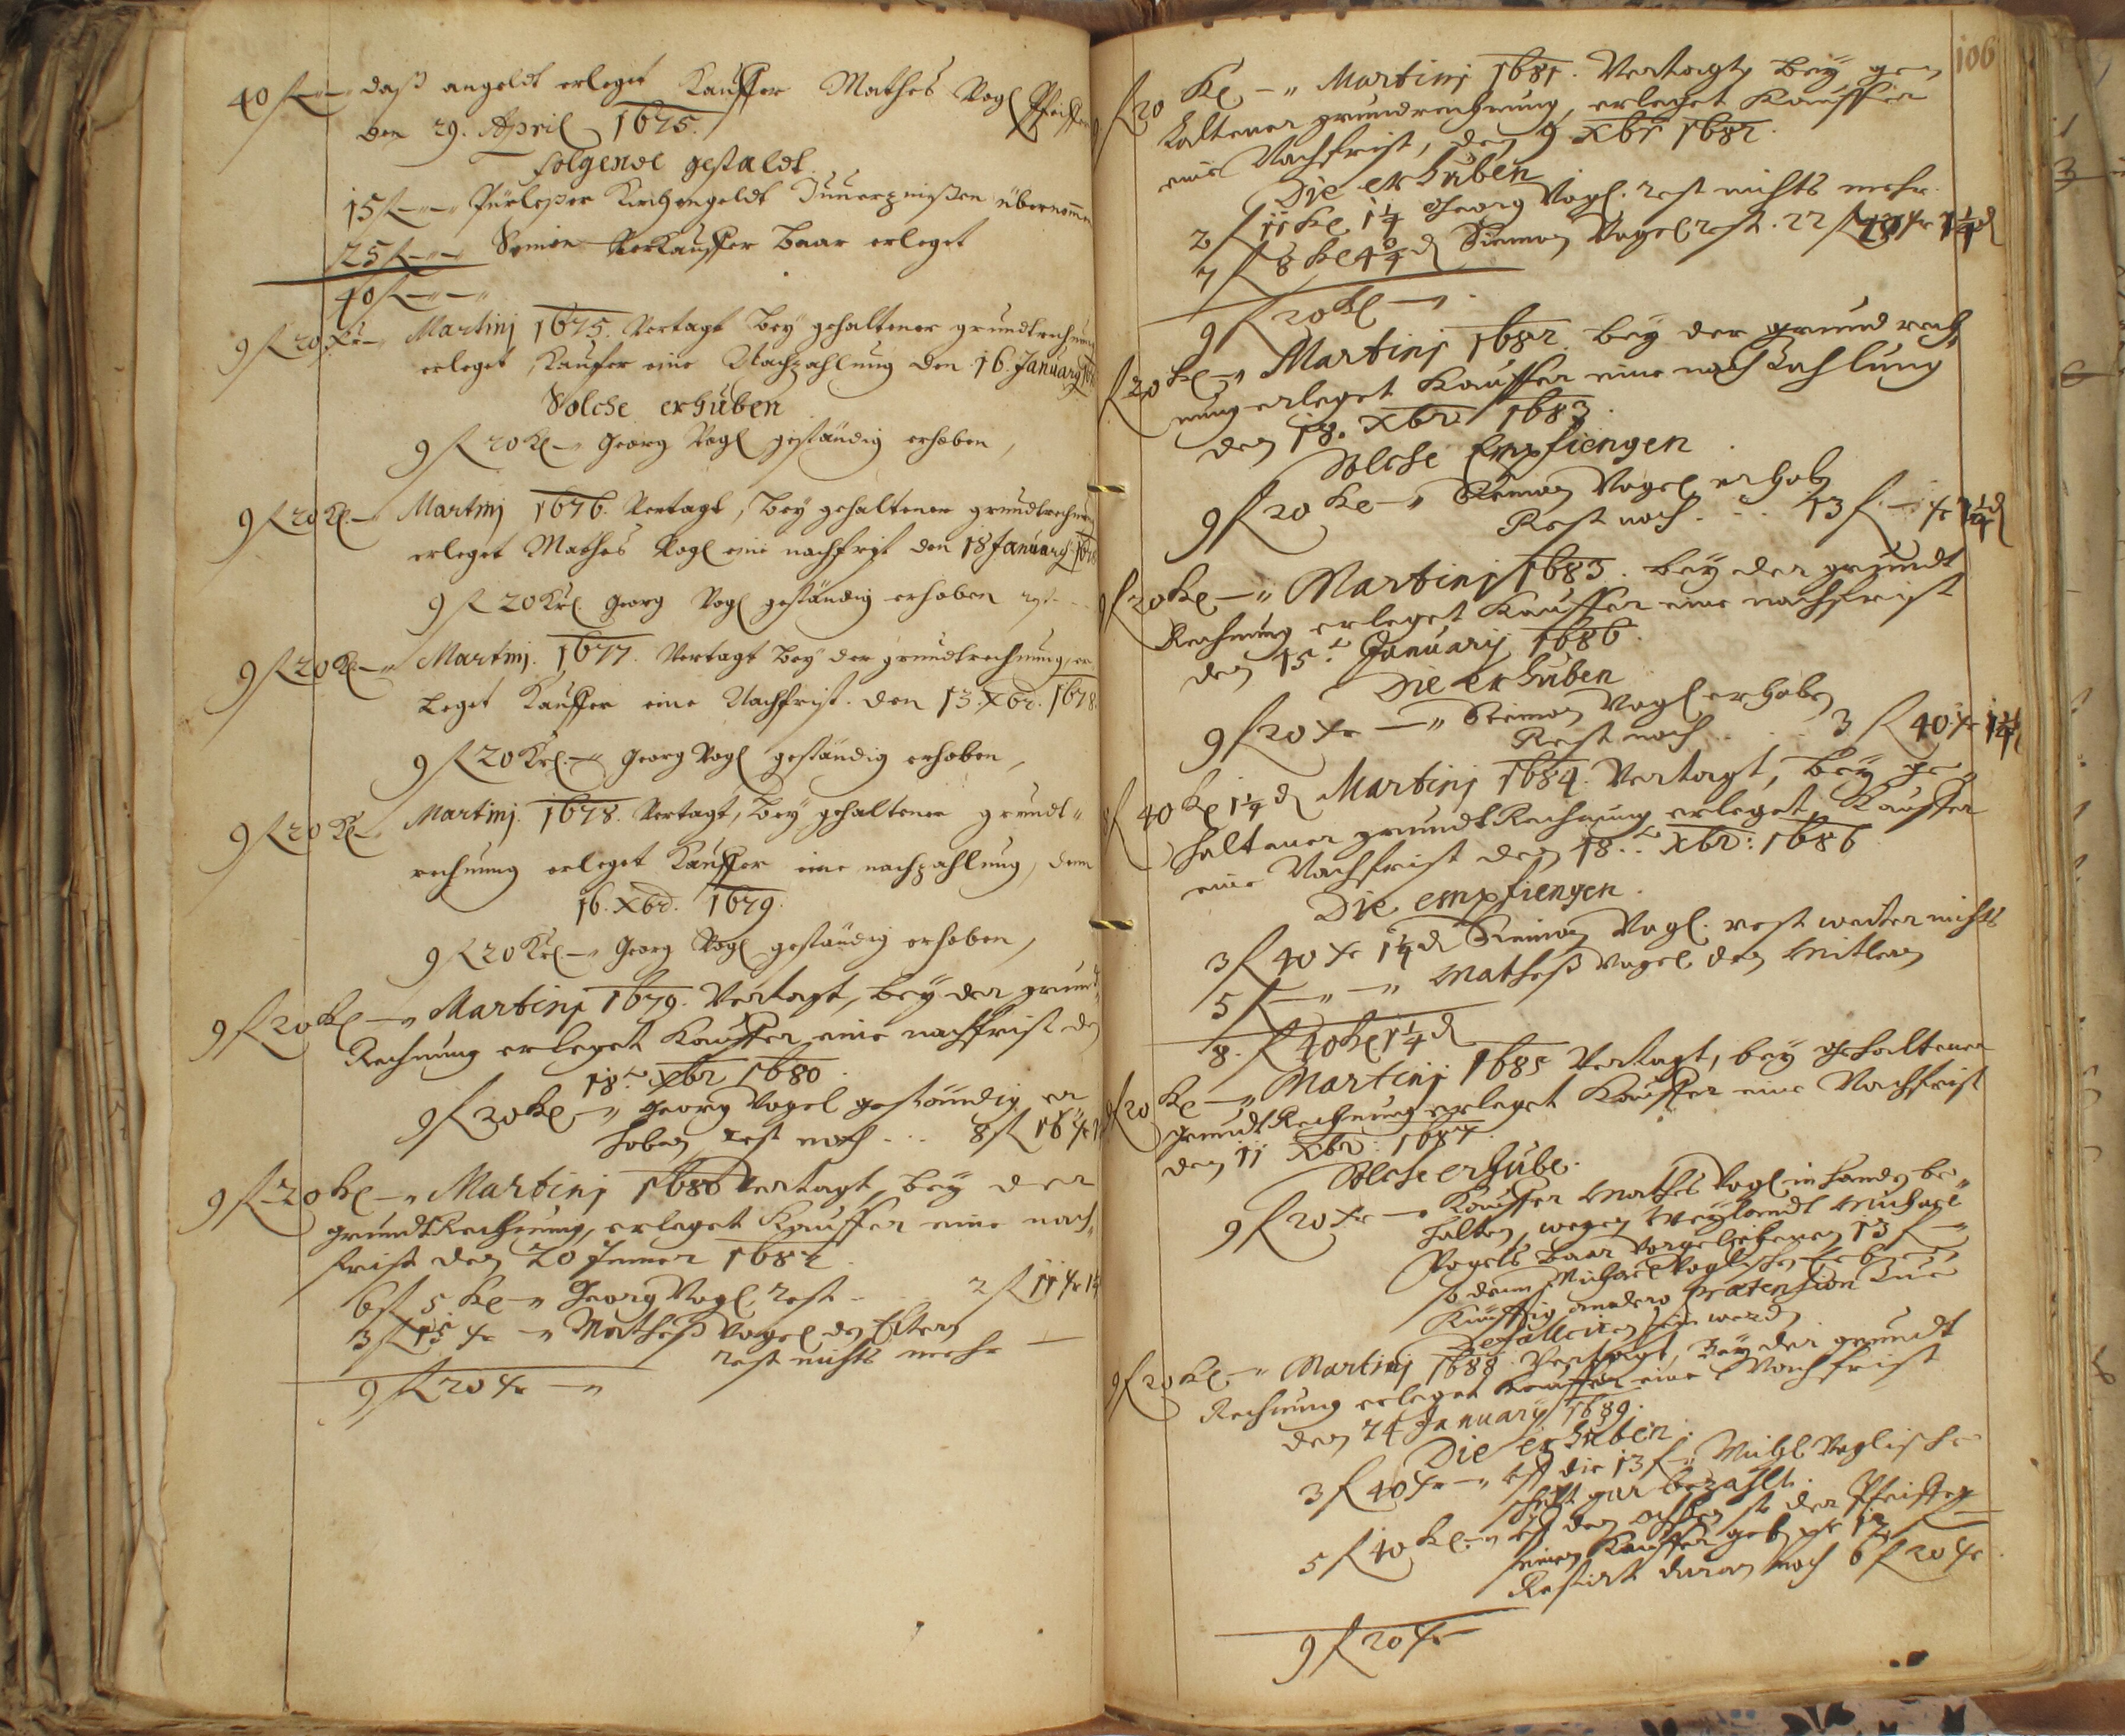 40 f — — daß angeldt erleget Kauffer Mathes Vogl Pfeiffer
den 29. April 1675.
folgende gestaldt.
15 f — — Kirchengeldt übernommen
25 f — — Simon Verkauffer baar erleget
40 f — —
9 f 20 Kr — Martinj 1675. Vertagt bey gehaltener grundtrechnung
erleget Kauffer eine Nachzahlung den 16. January
Solche erhuben
9 f 20 Kr — Georg Vogl geständig erhoben,
9 f 20 Kr — Martinj 1676. Vertagt, bey gehaltener grundtrechnung
erleget Mathes Vogl eine nachfrist den 18 January
9 f 20 Kr Georg Vogl geständig erhoben
9 f 20 Kr — Martinj. 1677. Vertagt bey der grundtrechnung, er-
leget Kauffer eine Nachfrist. den 13. Xbr. 1678.
9 f 20 Kr — Georg Vogl geständig erhoben,
9 f 20 Kr Martinj. 1678. Vertagt, bey gehaltener grundt-
rechnung erleget Kauffer eine nachzahlung, denn
16. Xbr. 1679.
9 f 20 Kr — Georg Vogl geständig erhoben,
9 f 20 Kr — Martinj 1679. Vertagt, bey der grundt-
Rechnung erleget Kauffer eine nachfrist den
18. Xbr 1680.
9 f 20 Kr — Georg Vogel geständig er
hoben rest noch . . . 8 f 16 Kr
9 f 20 Kr — Martinj 1680 Vertagt, bey der
grundt Rechnung, erleget Kauffer eine nach-
frist den 20 Jenner 1682.
6 f 5 Kr — Georg Vogl, rest . . 2 f 11 Kr 1¼
3 f 15 Kr — Matheß Vogel der Eltern
rest nichts mehr —
9 f 20 Kr —
106
f 20 Kr — Martinj 1681. Vertagt bey ge
haltener grundrechnung, erleget Kauffer
eine Nachfrist, den 9. Xbr 1682.
Die erhuben
2 f 11 Kr 1¼ Georg Vogl. rest nichts mehr.
7 f 8 Kr Siemon Vogel rest. 22 f
9 f 20 Kr —
f 20 Kr — Martinj 1682. bey der grund rech
nung erleget Kauffer eine nach Zahlung
den 18. Xbr 1683.
Solche Empfiengen
9 f 20 Kr — Siemon Vogel, erhob
Rest noch . . . 13 f — Kr 1¼ d
9 f 20 Kr — Martinj 1683. bey der grundt
Rechnung erleget Kauffer eine nachfrist
den 15. January 1686.
Die erhuben
9 f 20 Kr — Siemon Vogl, erhoben
Rest noch . . . 3 f 40 Kr 1¼
8 f 40 Kr 1¼ d Martinj 1684. Vertagt, bey ge
haltener grundt Rechnung erleget, Kauffer
eine Nachfrist den 18. Xbr: 1686
Die empfiengen.
3 f 40 Kr 1¼ d Siemon Vogl. rest weiter nichts
5 f — — Matheß Vogel den Mitlern
8. f 40 Kr 1¼ d
9 f 20 Kr — Martinj 1685 Vertagt, bey gehaltener
grundt Rechnung erleget Kauffer eine Nachfrist
den 11 Xbr. 1687.
Solche erhube.
9 f 20 Kr — Kauffer Mathes Vogl in handen be-
halten, wegen Weylandt Michael
Vogels baar vorgeliehenen 13 f —
so denen Michael Voglischen Erben
Künfftig andere Prætension Zue
9 f 20 Kr — Martinj 1688 Vertagt, bey der grundt
Rechnung erleget Kauffer eine Nachfrist
den 24 January 1689.
Die erhuben.
3 f 40 Kr — die 13 f — Michl Voglische
gar bezahlt.
5 f 40 Kr — so der Pfeiffer
Restirt daran noch 6 f 20 Kr
9 f 20 Kr —